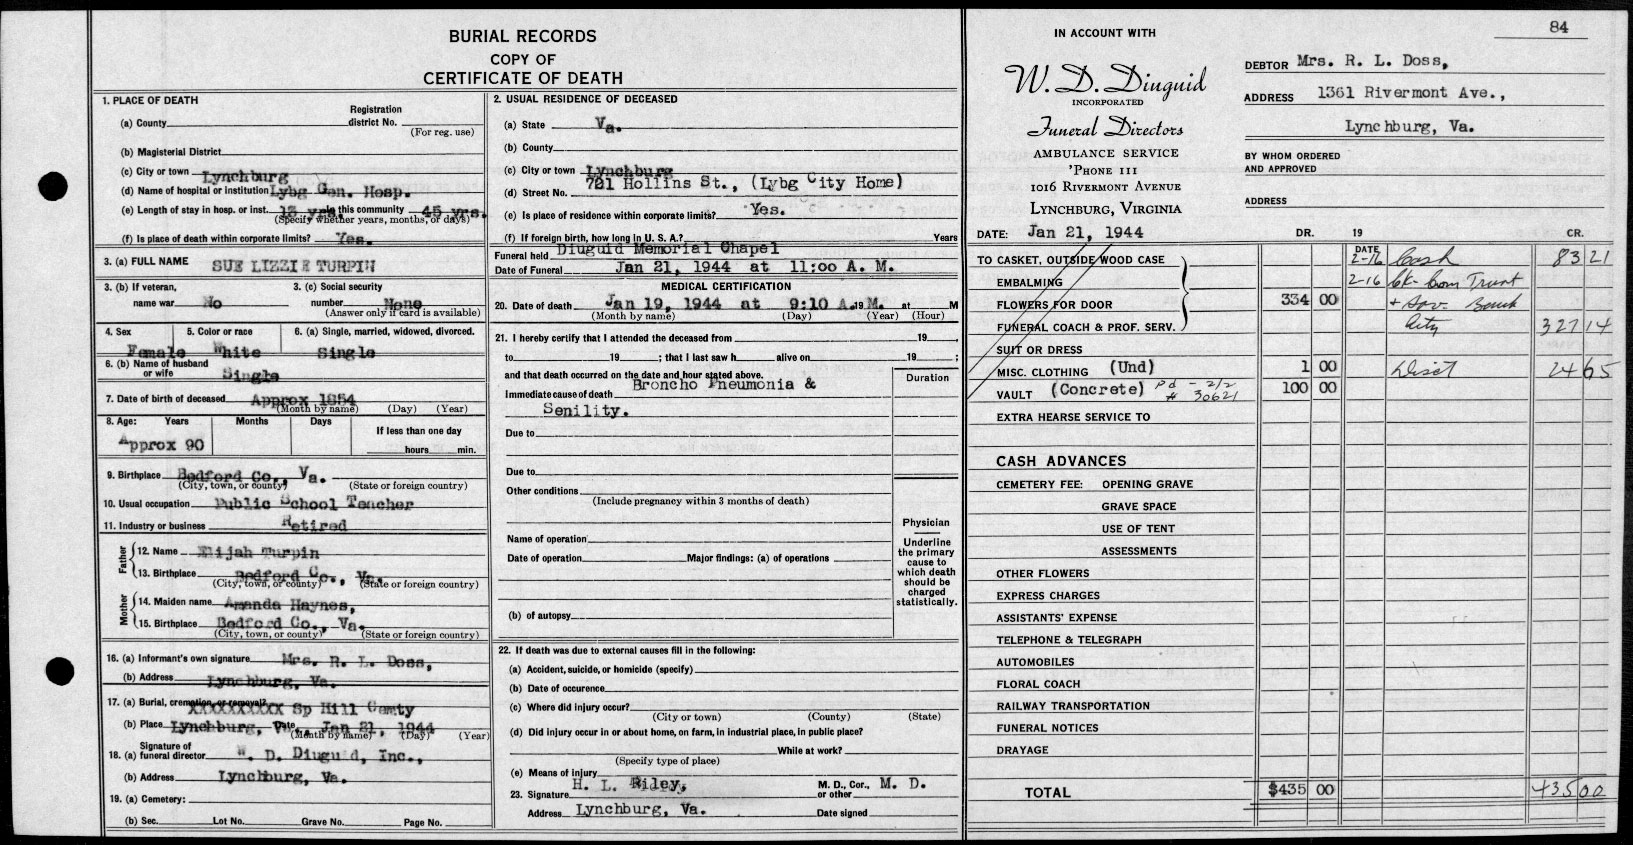 BURIAL RECORDS
COPY OF
CERTIFICATE OF DEATH
1. PLACE OF DEATH
(a) County
Registration district No.
(For reg. use)
(b) Magisterial District
(c) City or town Lynchburg
(d) Name of hospital or institution Lybg Gen. Hosp.
(e) Length of stay in hosp. or inst. 13 yrs. In this community 45 yrs.
(Specify whether years, months, or days)
(f) Is place of death within corporate limits? Yes.
3. (a) FULL NAME SUE LIZZIE TURPIN
3. (b) If veteran, name war No
3. (c) Social security number None
(Answer only if card is available)
4. Sex Female
5. Color or race White
6. (a) Single, married, widowed, divorced. Single
6. (b) Name of husband or wife Single
7. Date of birth of deceased Approx 1854
(Month by name) (Day) (Year)
8. Age: Years Months Days If less than one day
Approx 90 hours min.
9. Birthplace Bedford Co., Va.
(City, town, or county) (State or foreign country)
10. Usual occupation Public School Teacher
11. Industry or business Retired
Father
12. Name Elijah Turpin
13. Birthplace Bedford Co., Va.
(City, town, or county) (State or foreign country)
Mother
14. Maiden name Amanda Haynes,
15. Birthplace Bedford Co., Va.
(City, town, or county) (State or foreign country)
16. (a) Informant's own signature Mrs. R. L. Doss,
(b) Address Lynchburg, Va.
17. (a) Burial, cremation, or removal? XXXXXXXXXX Sp Hill Cemty
(b) Place Lynchburg, Va. Date Jan 21, 1944
(Month by name) (Day) (Year)
18. (a) Signature of funeral director W. D. Diuguid, Inc.,
(b) Address Lynchburg, Va.
19. (a) Cemetery:
(b) Sec. Lot No. Grave No. Page No.
2. USUAL RESIDENCE OF DECEASED
(a) State Va.
(b) County
(c) City or town Lynchburg
(d) Street No. 721 Hollins St., (Lybg City Home)
(e) Is place of residence within corporate limits? Yes.
(f) If foreign birth, how long in U. S. A.? Years
Funeral held Diuguid Memorial Chapel
Date of Funeral Jan 21, 1944 at 11:00 A. M.
MEDICAL CERTIFICATION
20. Date of death Jan 19, 1944 at 9:10 A. 19 M. at M
(Month by name) (Day) (Year) (Hour)
21. I hereby certify that I attended the deceased from 19 ,
to 19 ; that I last saw h alive on 19 ;
and that death occurred on the date and hour stated above.
Duration
Immediate cause of death Broncho Pneumonia &
Senility.
Due to
Due to
Other conditions
(Include pregnancy within 3 months of death)
Name of operation
Date of operation Major findings: (a) of operations
(b) of autopsy
Physician
Underline the primary cause to which death should be charged statistically.
22. If death was due to external causes fill in the following:
(a) Accident, suicide, or homicide (specify)
(b) Date of occurence
(c) Where did injury occur?
(City or town) (County) (State)
(d) Did injury occur in or about home, on farm, in industrial place, in public place?
While at work?
(Specify type of place)
(e) Means of injury
23. Signature H. L. Riley, M. D., Cor., or other M. D.
Address Lynchburg, Va. Date signed
84
IN ACCOUNT WITH
W. D. Diuguid
INCORPORATED
Funeral Directors
AMBULANCE SERVICE
'PHONE 111
1016 RIVERMONT AVENUE
LYNCHBURG, VIRGINIA
DEBTOR Mrs. R. L. Doss,
ADDRESS 1361 Rivermont Ave.,
Lynchburg, Va.
BY WHOM ORDERED AND APPROVED
ADDRESS
DATE: Jan 21, 1944 DR. 19 CR.
TO CASKET, OUTSIDE WOOD CASE DATE 2-16 Cash 83 21
EMBALMING 2-16 ck- Lom Trust
FLOWERS FOR DOOR 334 00 + Sav. Bank
FUNERAL COACH & PROF. SERV. City 327 14
SUIT OR DRESS
MISC. CLOTHING (Und) 1 00 Disct 24 65
VAULT (Concrete) Pd - 2/2 # 30621 100 00
EXTRA HEARSE SERVICE TO
CASH ADVANCES
CEMETERY FEE: OPENING GRAVE
GRAVE SPACE
USE OF TENT
ASSESSMENTS
OTHER FLOWERS
EXPRESS CHARGES
ASSISTANTS' EXPENSE
TELEPHONE & TELEGRAPH
AUTOMOBILES
FLORAL COACH
RAILWAY TRANSPORTATION
FUNERAL NOTICES
DRAYAGE
TOTAL $435 00 435 00